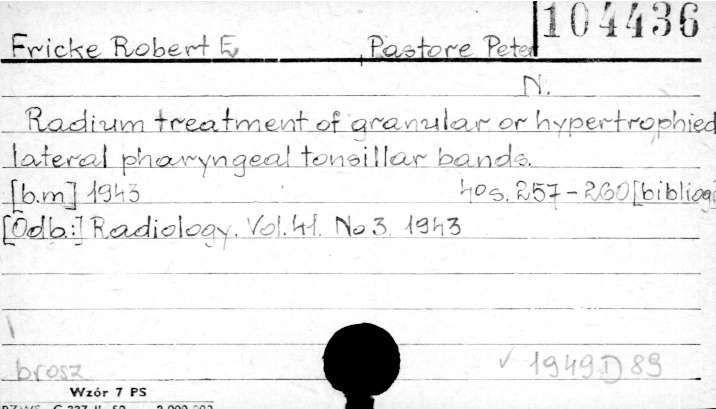 104436
Fricke Robert E, Pastore Peter
N.
Radium treatment of granular or hypertrophied
lateral pharyngeal tonsillar bands.
[b.m] 1943 4os. 257-260 [bibliogr
[Odb.:] Radiology. Vol. 41. No 3. 1943
brosz 1949 D 89
Wzór 7 PS